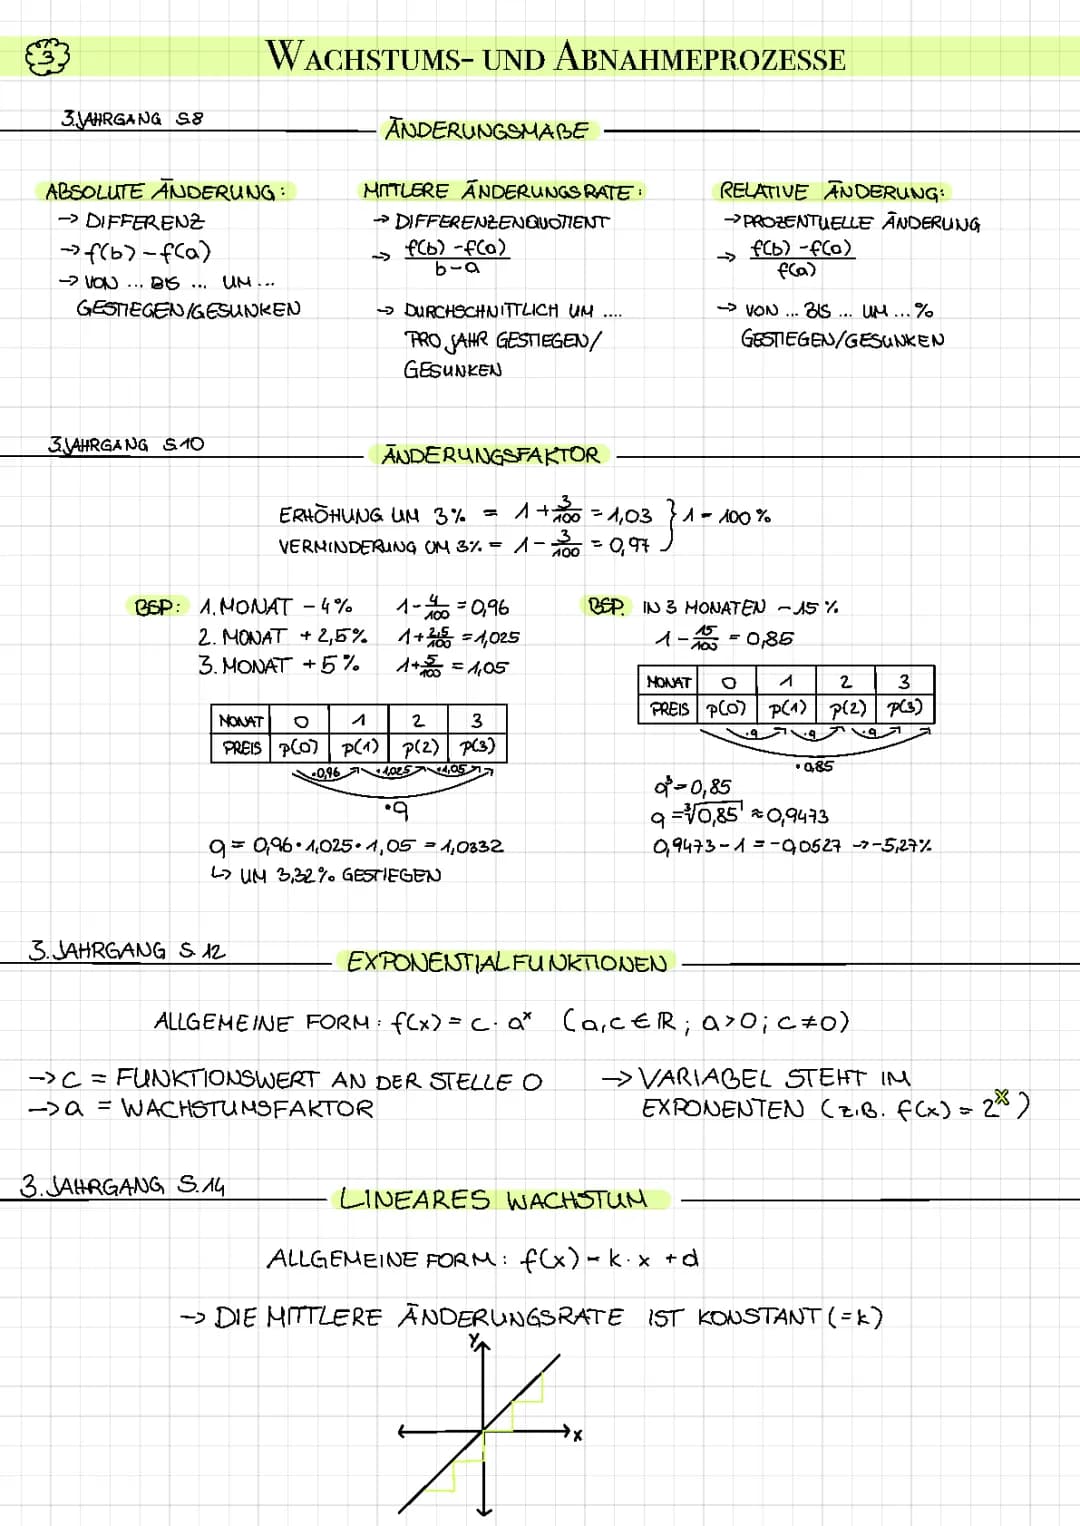 3
WACHSTUMS- UND ABNAHMEPROZESSE
3.JAHRGANG S8
ÄNDERUNGSMAßE
ABSOLUTE ÄNDERUNG:
→ DIFFERENZ
→ f(b) - f(a)
→ VON ... BIS ... UM ...
GESTIEGEN/GESUNKEN
MITTLERE ÄNDERUNGSRATE:
→ DIFFERENZENQUOTIENT
→ f(b) - f(a)
b-a
→ DURCHSCHNITTLICH UM ....
PRO JAHR GESTIEGEN/
GESUNKEN
RELATIVE ÄNDERUNG:
→ PROZENTUELLE ÄNDERUNG
→ f(b) - f(a)
f(a)
→ VON ... BIS ... UM ... %
GESTIEGEN/GESUNKEN
3.JAHRGANG S.10
ÄNDERUNGSFAKTOR
ERHÖHUNG UM 3% = 1 + 3/100 = 1,03 } 1 = 100 %
VERMINDERUNG UM 3% = 1 - 3/100 = 0,97
BSP: 1. MONAT - 4% 1 - 4/100 = 0,96
2. MONAT + 2,5% 1 + 2,5/100 = 1,025
3. MONAT + 5% 1 + 5/100 = 1,05
MONAT 0 1 2 3
PREIS p(0) p(1) p(2) p(3)
·0,96 ·1,025 ·1,05
·q
q = 0,96 · 1,025 · 1,05 = 1,0332
↳ UM 3,32% GESTIEGEN
BSP. IN 3 MONATEN - 15 %
1 - 15/100 = 0,85
MONAT 0 1 2 3
PREIS p(0) p(1) p(2) p(3)
·q ·q ·q
·0,85
q³ = 0,85
q = ³√0,85 ≈ 0,9473
0,9473 - 1 = -0,0527 → -5,27%
3. JAHRGANG S. 12
EXPONENTIALFUNKTIONEN
ALLGEMEINE FORM: f(x) = c · aˣ (a,c ∈ ℝ; a>0; c≠0)
→ c = FUNKTIONSWERT AN DER STELLE 0
→ a = WACHSTUMSFAKTOR
→ VARIABEL STEHT IM
EXPONENTEN (z.B. f(x) = 2ˣ)
3. JAHRGANG S.14
LINEARES WACHSTUM
ALLGEMEINE FORM: f(x) = k · x + d
→ DIE MITTLERE ÄNDERUNGSRATE IST KONSTANT (=k)
y
x